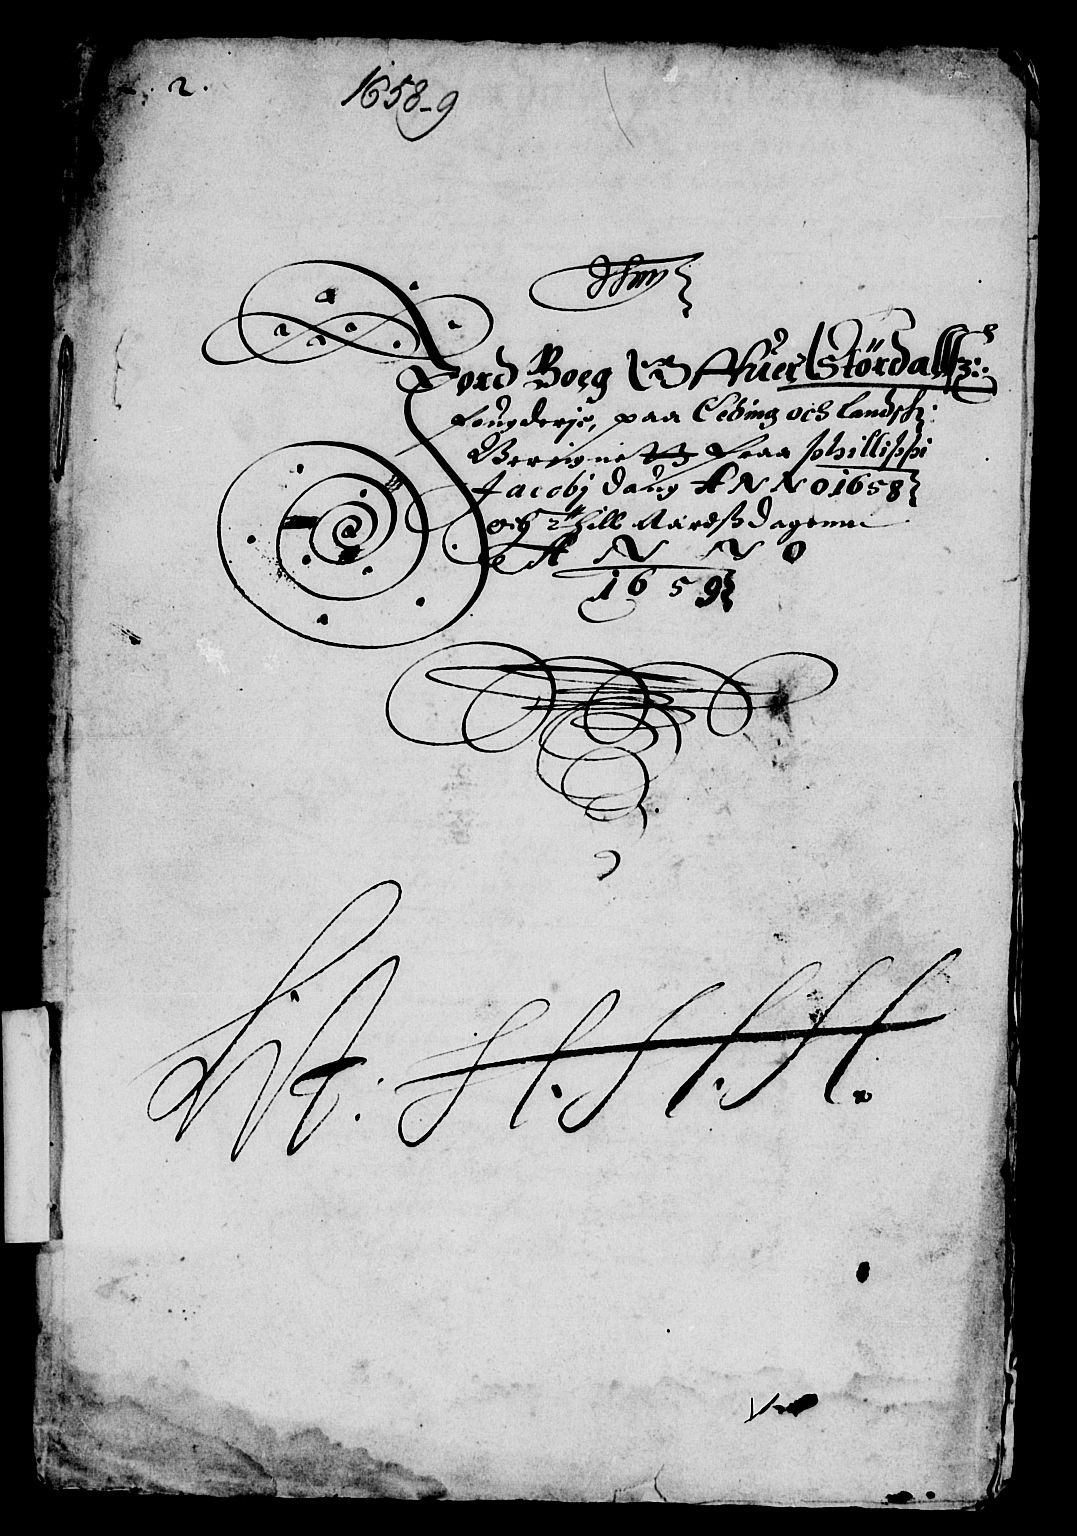 2.
1658-9
Jord Boeg Offuer Stördallß:
fougderje, paa Leding och Landsk:
Berignet fraa Phillippi
Jacobj daug ANNO 1658
och till Aarsdagenn
ANNO
1659
Lit: